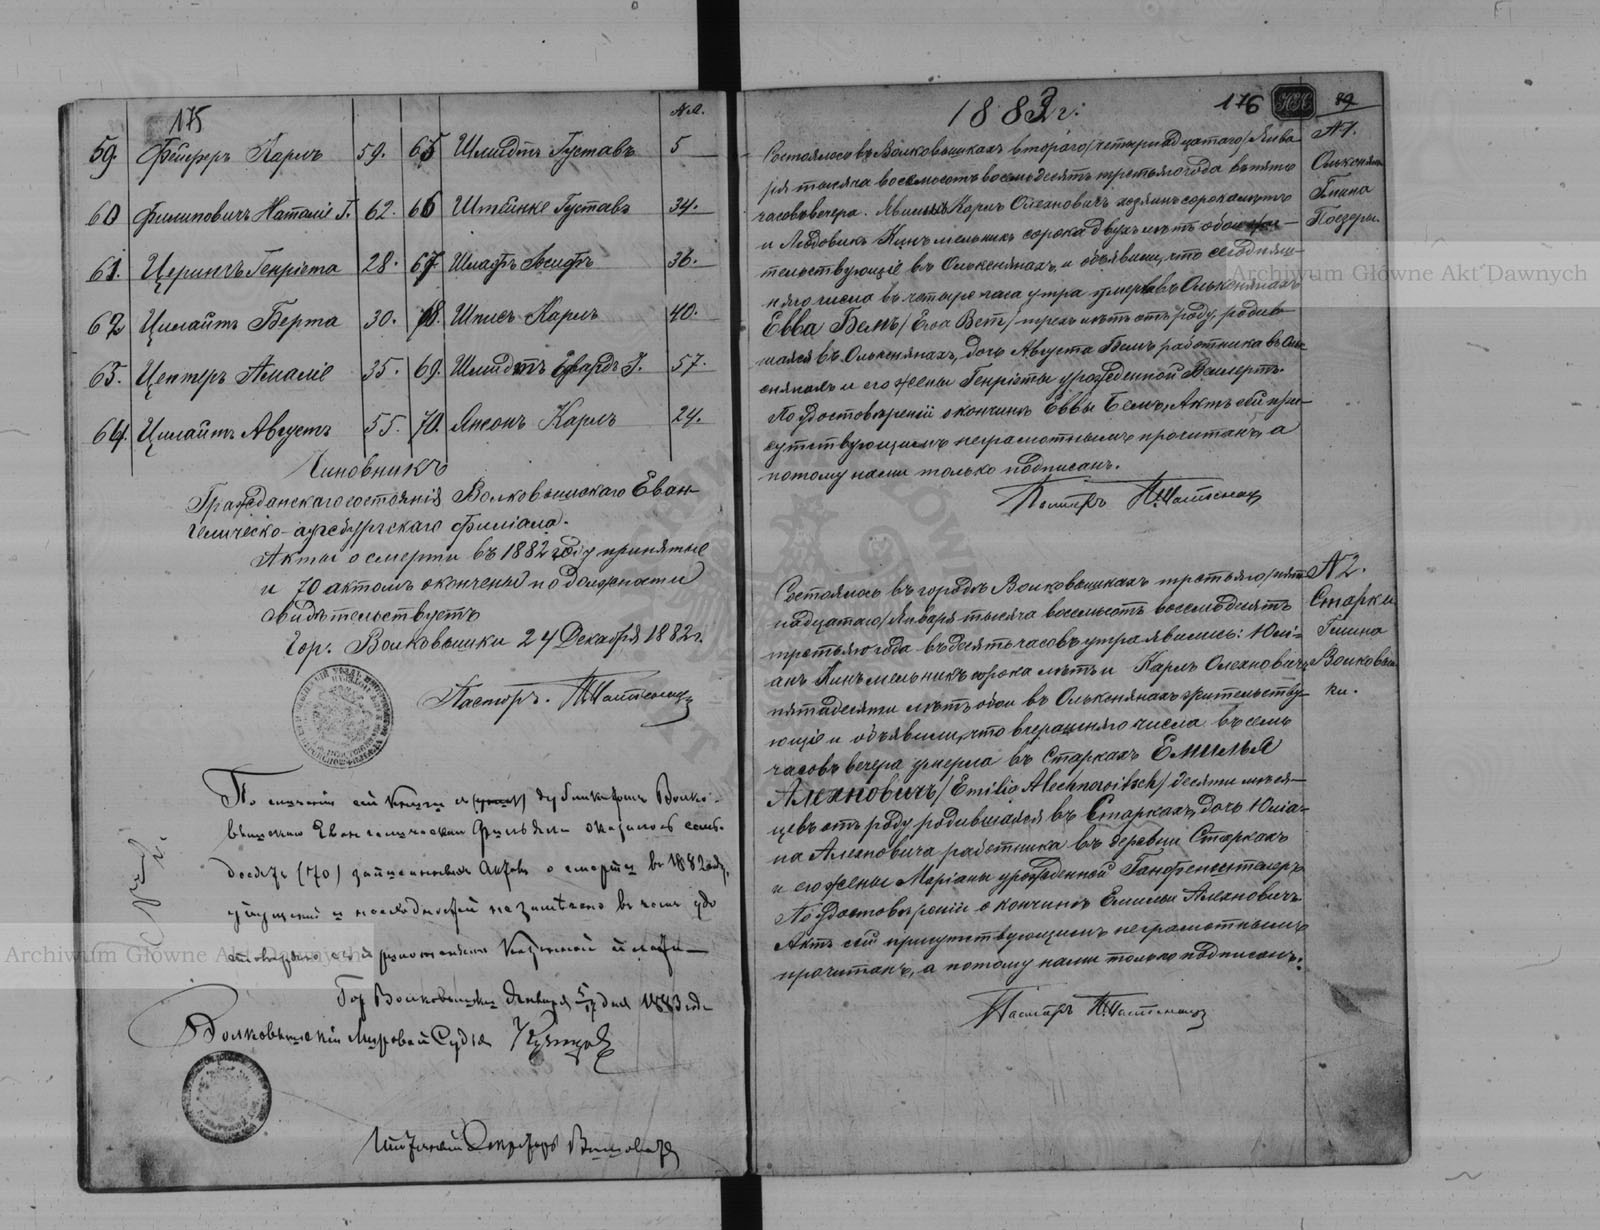 175
№ А.
59. Фейферъ Карлъ 59. 65 Шмидтъ Густавъ 5
60 Филиповичъ Наталіе Г. 62. 66 Штейнке Густавъ 34.
61. Церинъ Генріета 28. 67 Шлафъ Іосифъ 36.
62 Цимайтъ Берта 30. 68. Шписъ Карлъ 40.
63. Центеръ Амаліе 35. 69. Шмидтъ Едвардъ Г. 57.
64. Цимайтъ Августъ 55. 70. Янсонъ Карлъ 24.
Чиновникъ
Гражданскаго состоянія Волковышскаго Еван-
гелическо-аугсбургскаго филіала.
Акты о смерти въ 1882 году принятые
и 70 актомъ окончены по должности
свидѣтельствуетъ
Гор. Волковышки 24 Декабря 1882 г.
Пасторъ.
По сей книги дубликатъ Волко-
вышскаго Евангелическаго Филіала оказалось семь-
десятъ (70) записанныхъ Актовъ о смерти въ 1882 году,
упущеній и не замѣчено въ чемъ удо
стовѣряю
Гор Волковышки Января 5/17 дня 1883 года
Волковышскій Мировой Судья
Archiwum Główne Akt Dawnych
1883 г.
176
№ 1.
Олькеняны
Гмина
Состоялось въ Волковышкахъ второго/четырнадцатаго/Янва-
рія тысяча восемьсотъ восемьдесятъ третьяго года въ пять
часовъ вечера. Явились Карлъ Олехновичъ хозяинъ сорока лѣтъ
и Людовикъ Кинъ мельникъ сорока двухъ лѣтъ обои жи-
тельствующіе въ Олькенянахъ, и объявили, что сегодняш-
няго числа въ четыре часа утра умерла въ Олькенянахъ
Евва Бемъ/ трехъ лѣтъ отъ роду, родив-
шаяся въ Олькенянахъ, дочь Августа Бемъ работника въ Оль-
кенянахъ и его жены Генріеты урожденной
По удостовѣреніи о кончинѣ Еввы Бемъ, Актъ сей при-
сутствующимъ неграмотнымъ прочитанъ, а
потому нами только подписанъ.
Пасторъ
Archiwum Główne Akt Dawnych
№ 2.
Старки
Гмина
Волковыш-
ки.
Состоялось въ городѣ Волковышкахъ третьяго/пят-
надцатаго/Января тысяча восемьсотъ восемьдесятъ
третьяго года въ десять часовъ утра явились: Юлі-
анъ Кинъ мельникъ сорока лѣтъ и Карлъ Олехновичъ
пятадесяти лѣтъ обои въ Олькенянахъ жительству-
ющіе и объявили, что вчерашняго числа въ семь
часовъ вечера умерла въ Старкахъ Емилья
Алехновичъ/Emilie Alechnowitsch/десяти мѣся-
цевъ отъ роду родившаяся въ Старкахъ, дочь Юліа-
на Алехновича работника въ деревни Старкахъ
и его жены Маріаны урожденной
По удостовѣреніи о кончинѣ Емильи Алехновичъ
Актъ сей присутствующимъ неграмотнымъ
прочитанъ, а потому нами только подписанъ.
Пасторъ